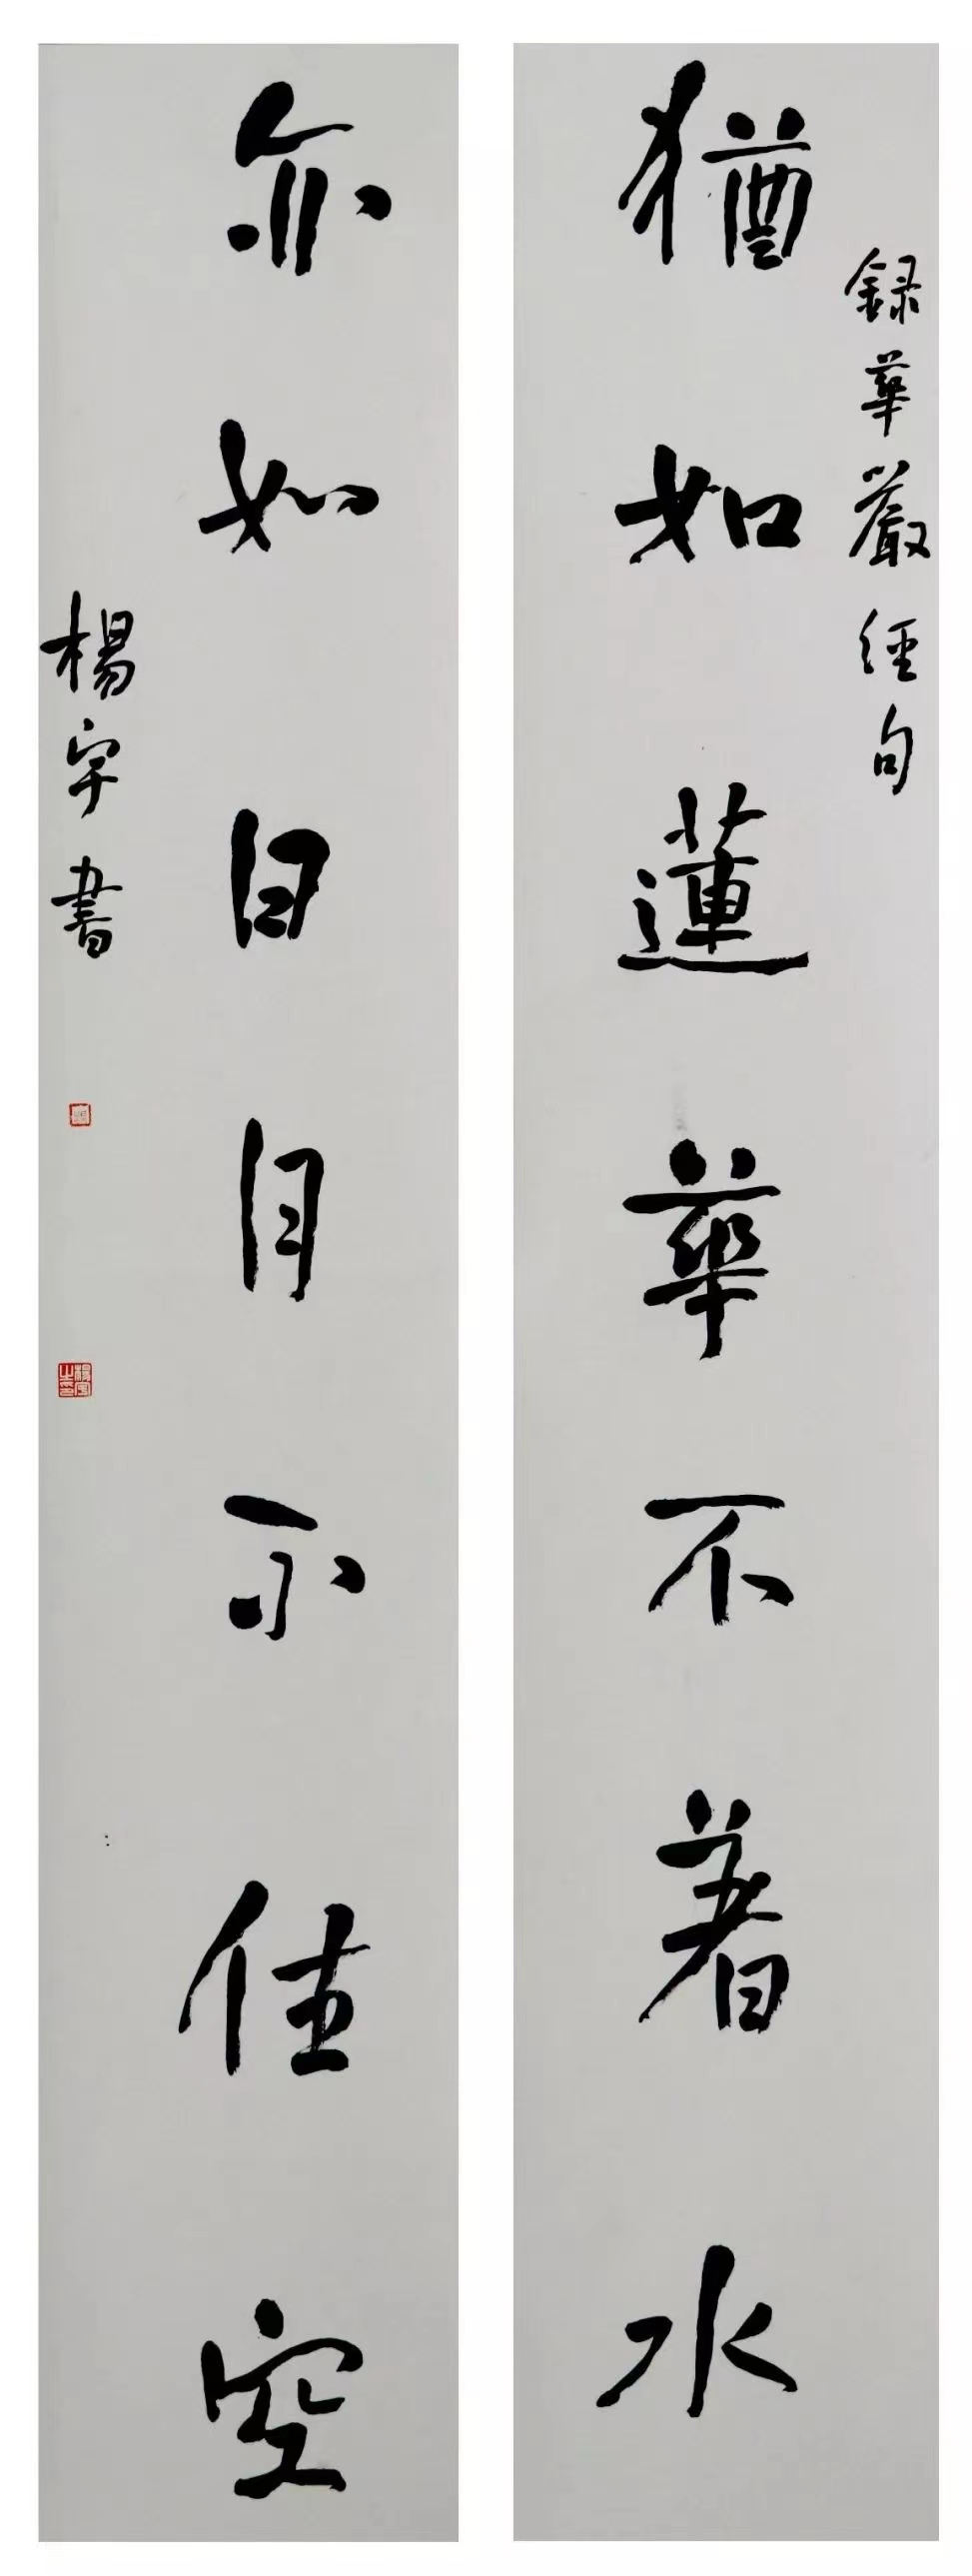 録華嚴經句
猶如蓮華不著水
亦如日月不住空
楊宇書